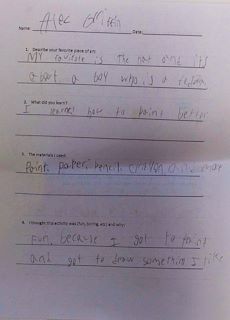 Name: Alec Griffin Date:
1. Describe your favorite piece of art:
My favorite is the not and its
about a boy who is a
2. What did you learn?
I learned how to paint better
3. The materials I used:
Paint, paper, pencil, crayon and
4. I thought this activity was (fun, boring, etc) and why:
Fun, because I got to paint
and got to draw something I like